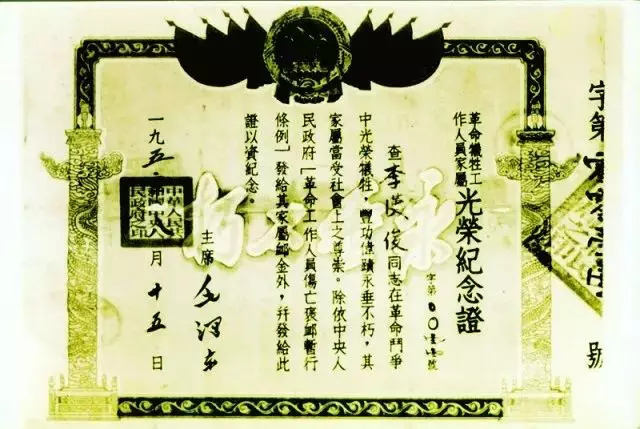 字第
號
革命犧牲工
作人員家屬
光榮紀念證
字第
號
查李漢俊同志在革命鬥爭
中光榮犧牲,豐功偉蹟永垂不朽,其
家屬當受社會上之尊崇。除依中央人
民政府「革命工作人員傷亡褒卹暫行
條例」發給其家屬卹金外,幷發給此
證以資紀念。
主席 毛澤東
一九五 年八月十五日
永垂不朽